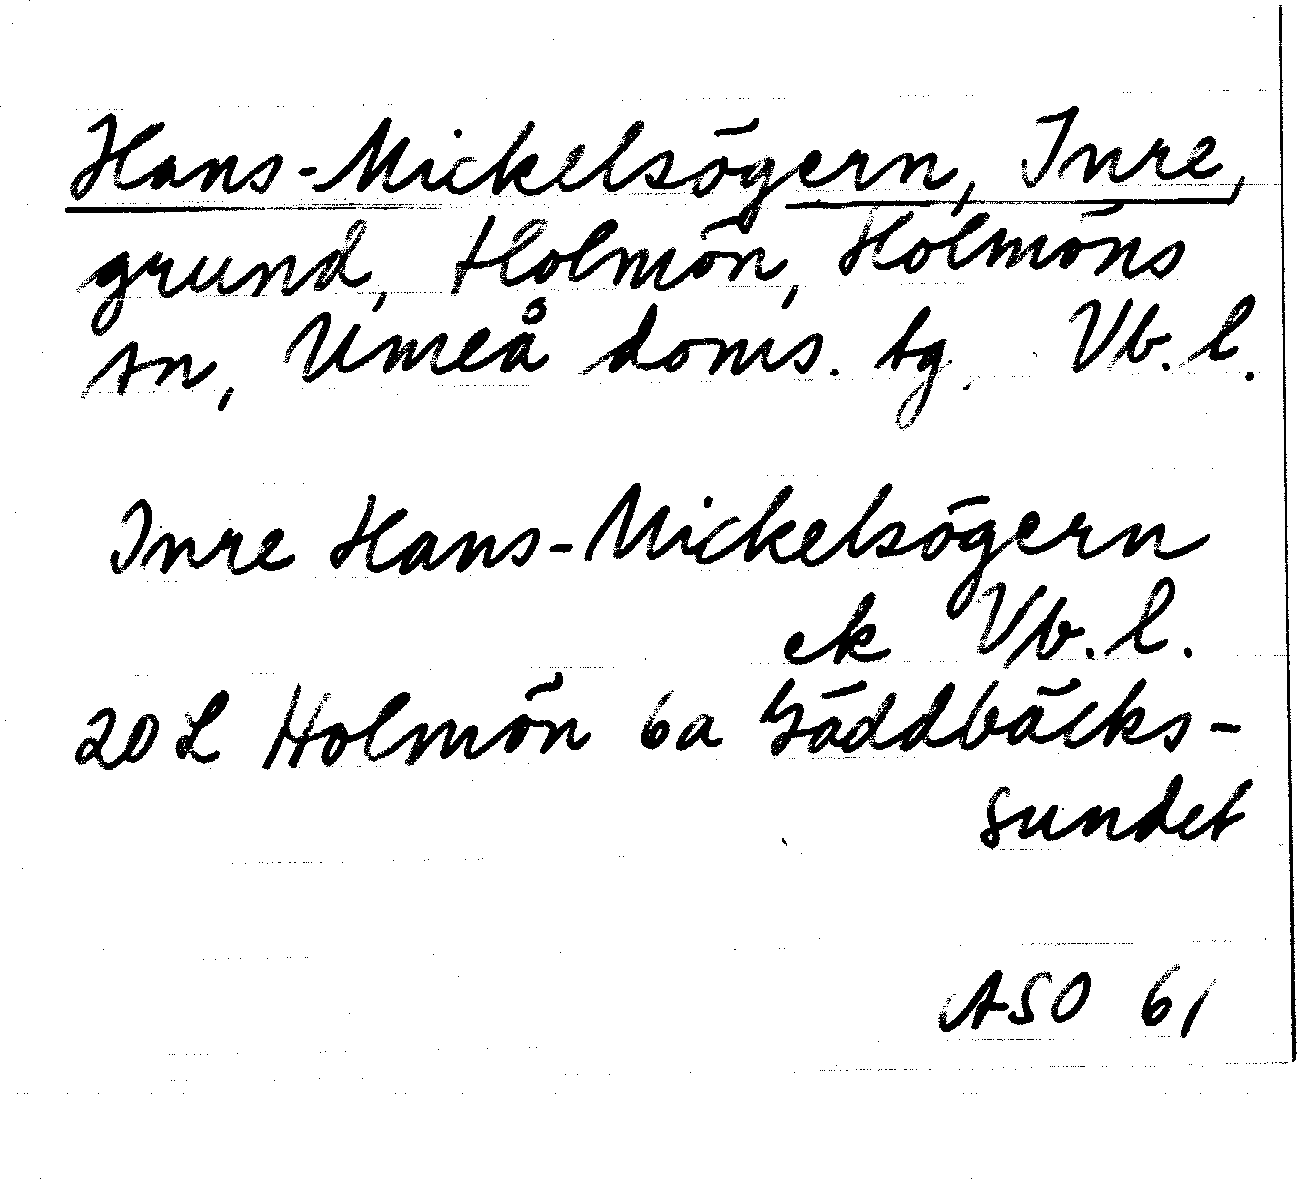 Hans-Mickelsögern, Inre,
grund, Holmön, Holmöns
sn, Umeå doms. tg. Vb. l.
Inre Hans-Mickelsögern
ek Vb. l.
20 L Holmön 6a Gäddbäcks-
sundet
ASO 61